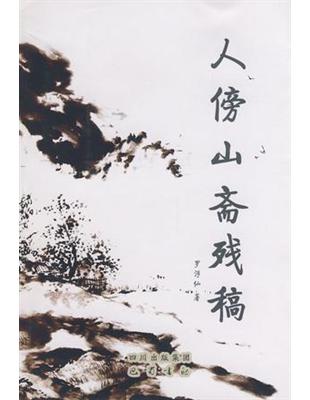 人傍山斋残稿
罗浮仙 著
四川出版集团
巴蜀书社